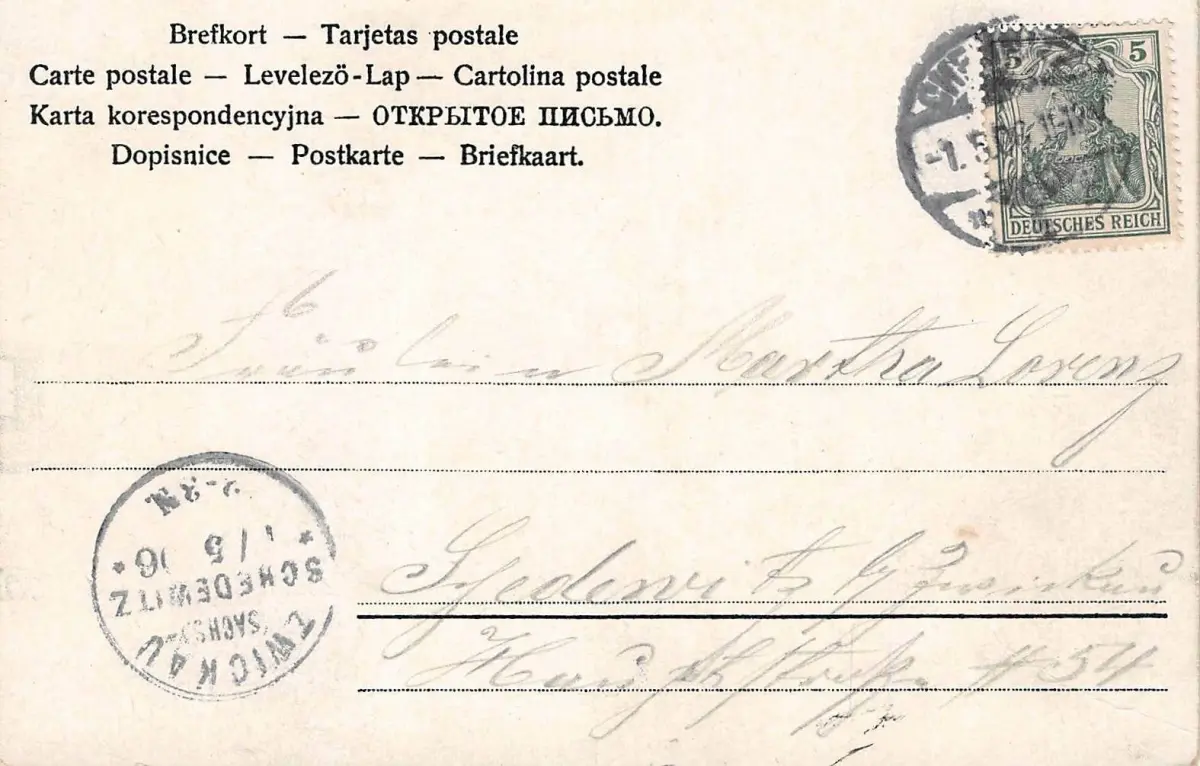 Brefkort — Tarjetas postale
Carte postale — Levelezö-Lap — Cartolina postale
Karta korespondencyjna — ОТКРЫТОЕ ПИСЬМО.
Dopisnice — Postkarte — Briefkaart.
5 5
DEUTSCHES REICH
-1.5.06
Fräulein Martha Lorenz
2-3N.
* 1/5 06 *
SCHEDEWITZ
(SACHSEN)
ZWICKAU
Schedewitz b/ Zwickau
Hauptstraße # 51